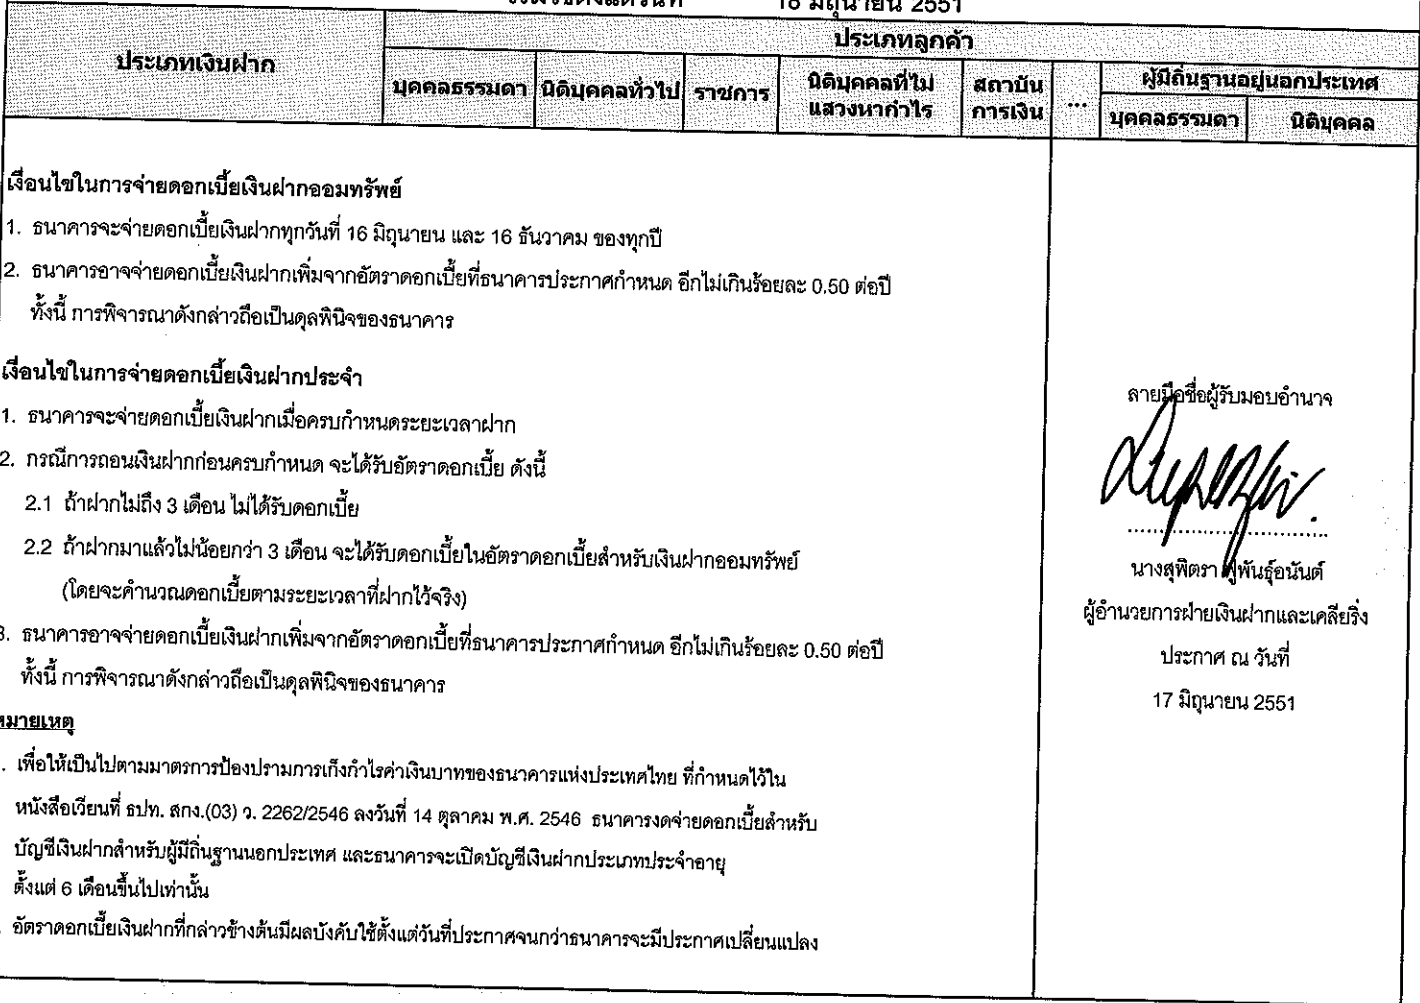 18 มิถุนายน 2551
ประเภทเงินฝาก
ประเภทลูกค้า
บุคคลธรรมดา
นิติบุคคลทั่วไป
ราชการ
นิติบุคคลที่ไม่
แสวงหากำไร
สถาบัน
การเงิน
...
ผู้มีถิ่นฐานอยู่นอกประเทศ
บุคคลธรรมดา
นิติบุคคล
เงื่อนไขในการจ่ายดอกเบี้ยเงินฝากออมทรัพย์
1. ธนาคารจะจ่ายดอกเบี้ยเงินฝากทุกวันที่ 16 มิถุนายน และ 16 ธันวาคม ของทุกปี
2. ธนาคารอาจจ่ายดอกเบี้ยเงินฝากเพิ่มจากอัตราดอกเบี้ยที่ธนาคารประกาศกำหนด อีกไม่เกินร้อยละ 0.50 ต่อปี
ทั้งนี้ การพิจารณาดังกล่าวถือเป็นดุลพินิจของธนาคาร
เงื่อนไขในการจ่ายดอกเบี้ยเงินฝากประจำ
1. ธนาคารจะจ่ายดอกเบี้ยเงินฝากเมื่อครบกำหนดระยะเวลาฝาก
2. กรณีการถอนเงินฝากก่อนครบกำหนด จะได้รับอัตราดอกเบี้ย ดังนี้
2.1 ถ้าฝากไม่ถึง 3 เดือน ไม่ได้รับดอกเบี้ย
2.2 ถ้าฝากมาแล้วไม่น้อยกว่า 3 เดือน จะได้รับดอกเบี้ยในอัตราดอกเบี้ยสำหรับเงินฝากออมทรัพย์
(โดยจะคำนวณดอกเบี้ยตามระยะเวลาที่ฝากไว้จริง)
3. ธนาคารอาจจ่ายดอกเบี้ยเงินฝากเพิ่มจากอัตราดอกเบี้ยที่ธนาคารประกาศกำหนด อีกไม่เกินร้อยละ 0.50 ต่อปี
ทั้งนี้ การพิจารณาดังกล่าวถือเป็นดุลพินิจของธนาคาร
หมายเหตุ
. เพื่อให้เป็นไปตามมาตรการป้องปรามการเก็งกำไรค่าเงินบาทของธนาคารแห่งประเทศไทย ที่กำหนดไว้ใน
หนังสือเวียนที่ ธปท. สกง.(03) ว. 2262/2546 ลงวันที่ 14 ตุลาคม พ.ศ. 2546 ธนาคารงดจ่ายดอกเบี้ยสำหรับ
บัญชีเงินฝากสำหรับผู้มีถิ่นฐานนอกประเทศ และธนาคารจะเปิดบัญชีเงินฝากประเภทประจำอายุ
ตั้งแต่ 6 เดือนขึ้นไปเท่านั้น
. อัตราดอกเบี้ยเงินฝากที่กล่าวข้างต้นมีผลบังคับใช้ตั้งแต่วันที่ประกาศจนกว่าธนาคารจะมีประกาศเปลี่ยนแปลง
ลายมือชื่อผู้รับมอบอำนาจ
นางสุพิตรา ฟูพันธุ์อนันต์
ผู้อำนวยการฝ่ายเงินฝากและเคลียริ่ง
ประกาศ ณ วันที่
17 มิถุนายน 2551